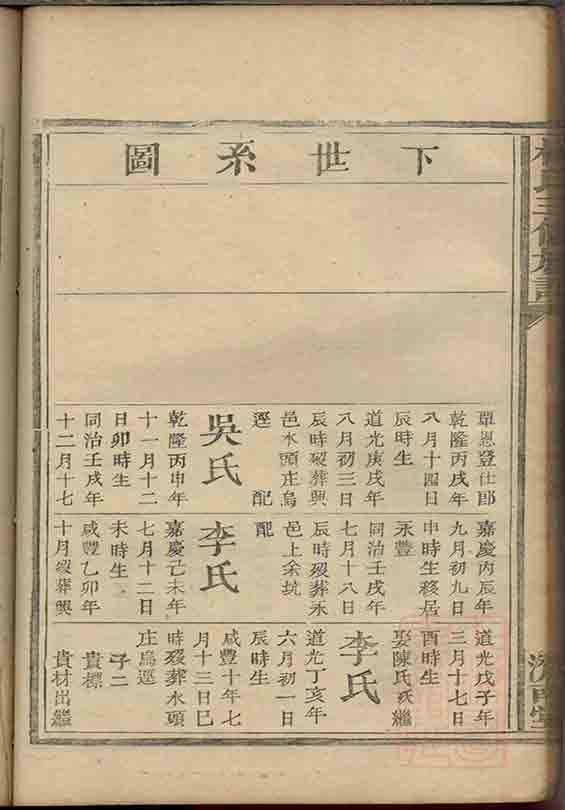 下世系圖
覃恩登仕郎
乾隆丙戌年
八月十四日
辰時生
道光庚戌年
八月初三日
辰時歿葬興
邑水頭庄烏
逕 配
吳氏
乾隆丙申年
十一月十二
日卯時生
同治壬戌年
十二月十七
嘉慶丙辰年
九月初九日
申時生移居
永豐
同治壬戌年
七月十八日
辰時歿葬永
邑上余坑
配
李氏
嘉慶己未年
七月十二日
未時生
咸豐乙卯年
十月歿葬興
道光戊子年
三月十七日
酉時生
娶陳氏
繼
李氏
道光丁亥年
六月初一日
辰時生
咸豐十年七
月十三日巳
時歿葬水頭
庄烏逕
子二
貴標
貴材出繼